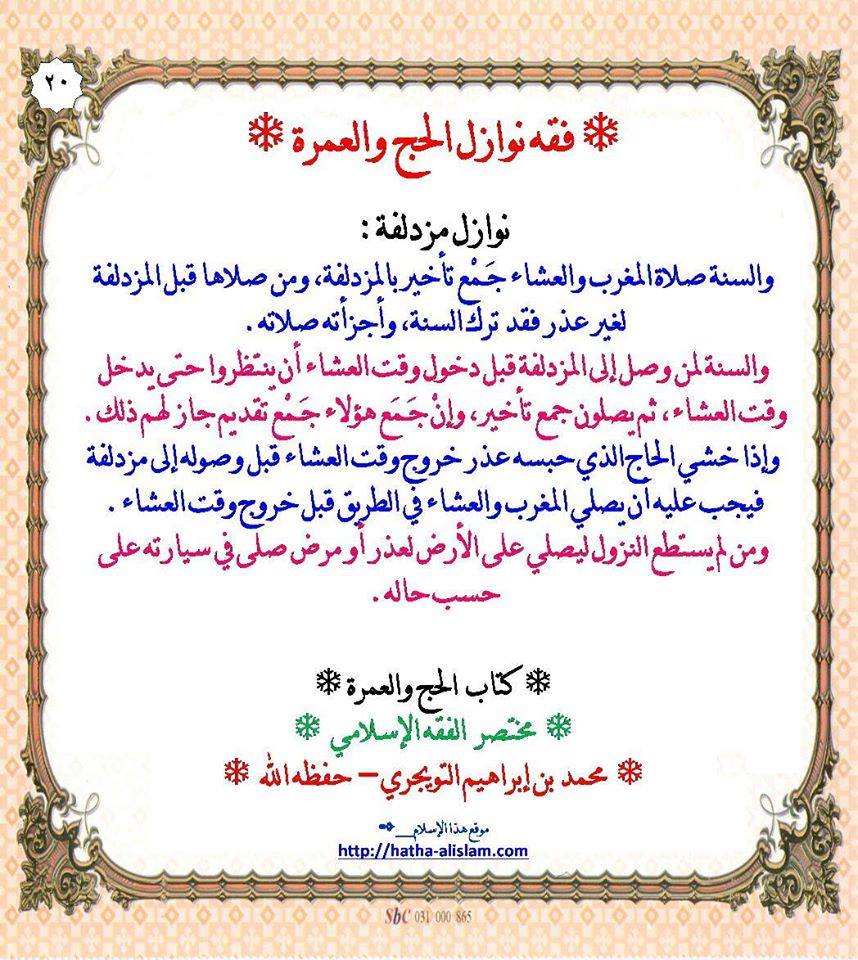 ٢٠
❄ فقه نوازل الحج والعمرة ❄
نوازل مزدلفة :
والسنة صلاة المغرب والعشاء جَمْع تأخير بالمزدلفة، ومن صلاها قبل المزدلفة
لغير عذر فقد ترك السنة، وأجزأته صلاته .
والسنة لمن وصل إلى المزدلفة قبل دخول وقت العشاء أن ينتظروا حتى يدخل
وقت العشاء، ثم يصلون جمع تأخير، وإنْ جَمَع هؤلاء جَمْع تقديم جاز لهم ذلك .
وإذا خشي الحاج الذي حبسه عذر خروج وقت العشاء قبل وصوله إلى مزدلفة
فيجب عليه أن يصلي المغرب والعشاء في الطريق قبل خروج وقت العشاء .
ومن لم يستطع النزول ليصلي على الأرض لعذر أو مرض صلى في سيارته على
حسب حاله .
❄ كتاب الحج والعمرة ❄
❄ مختصر الفقه الإسلامي ❄
❄ محمد بن إبراهيم التويجري – حفظه الله ❄
موقع هذا الإسلام__
http://hatha-alislam.com
SbC 031 000 865